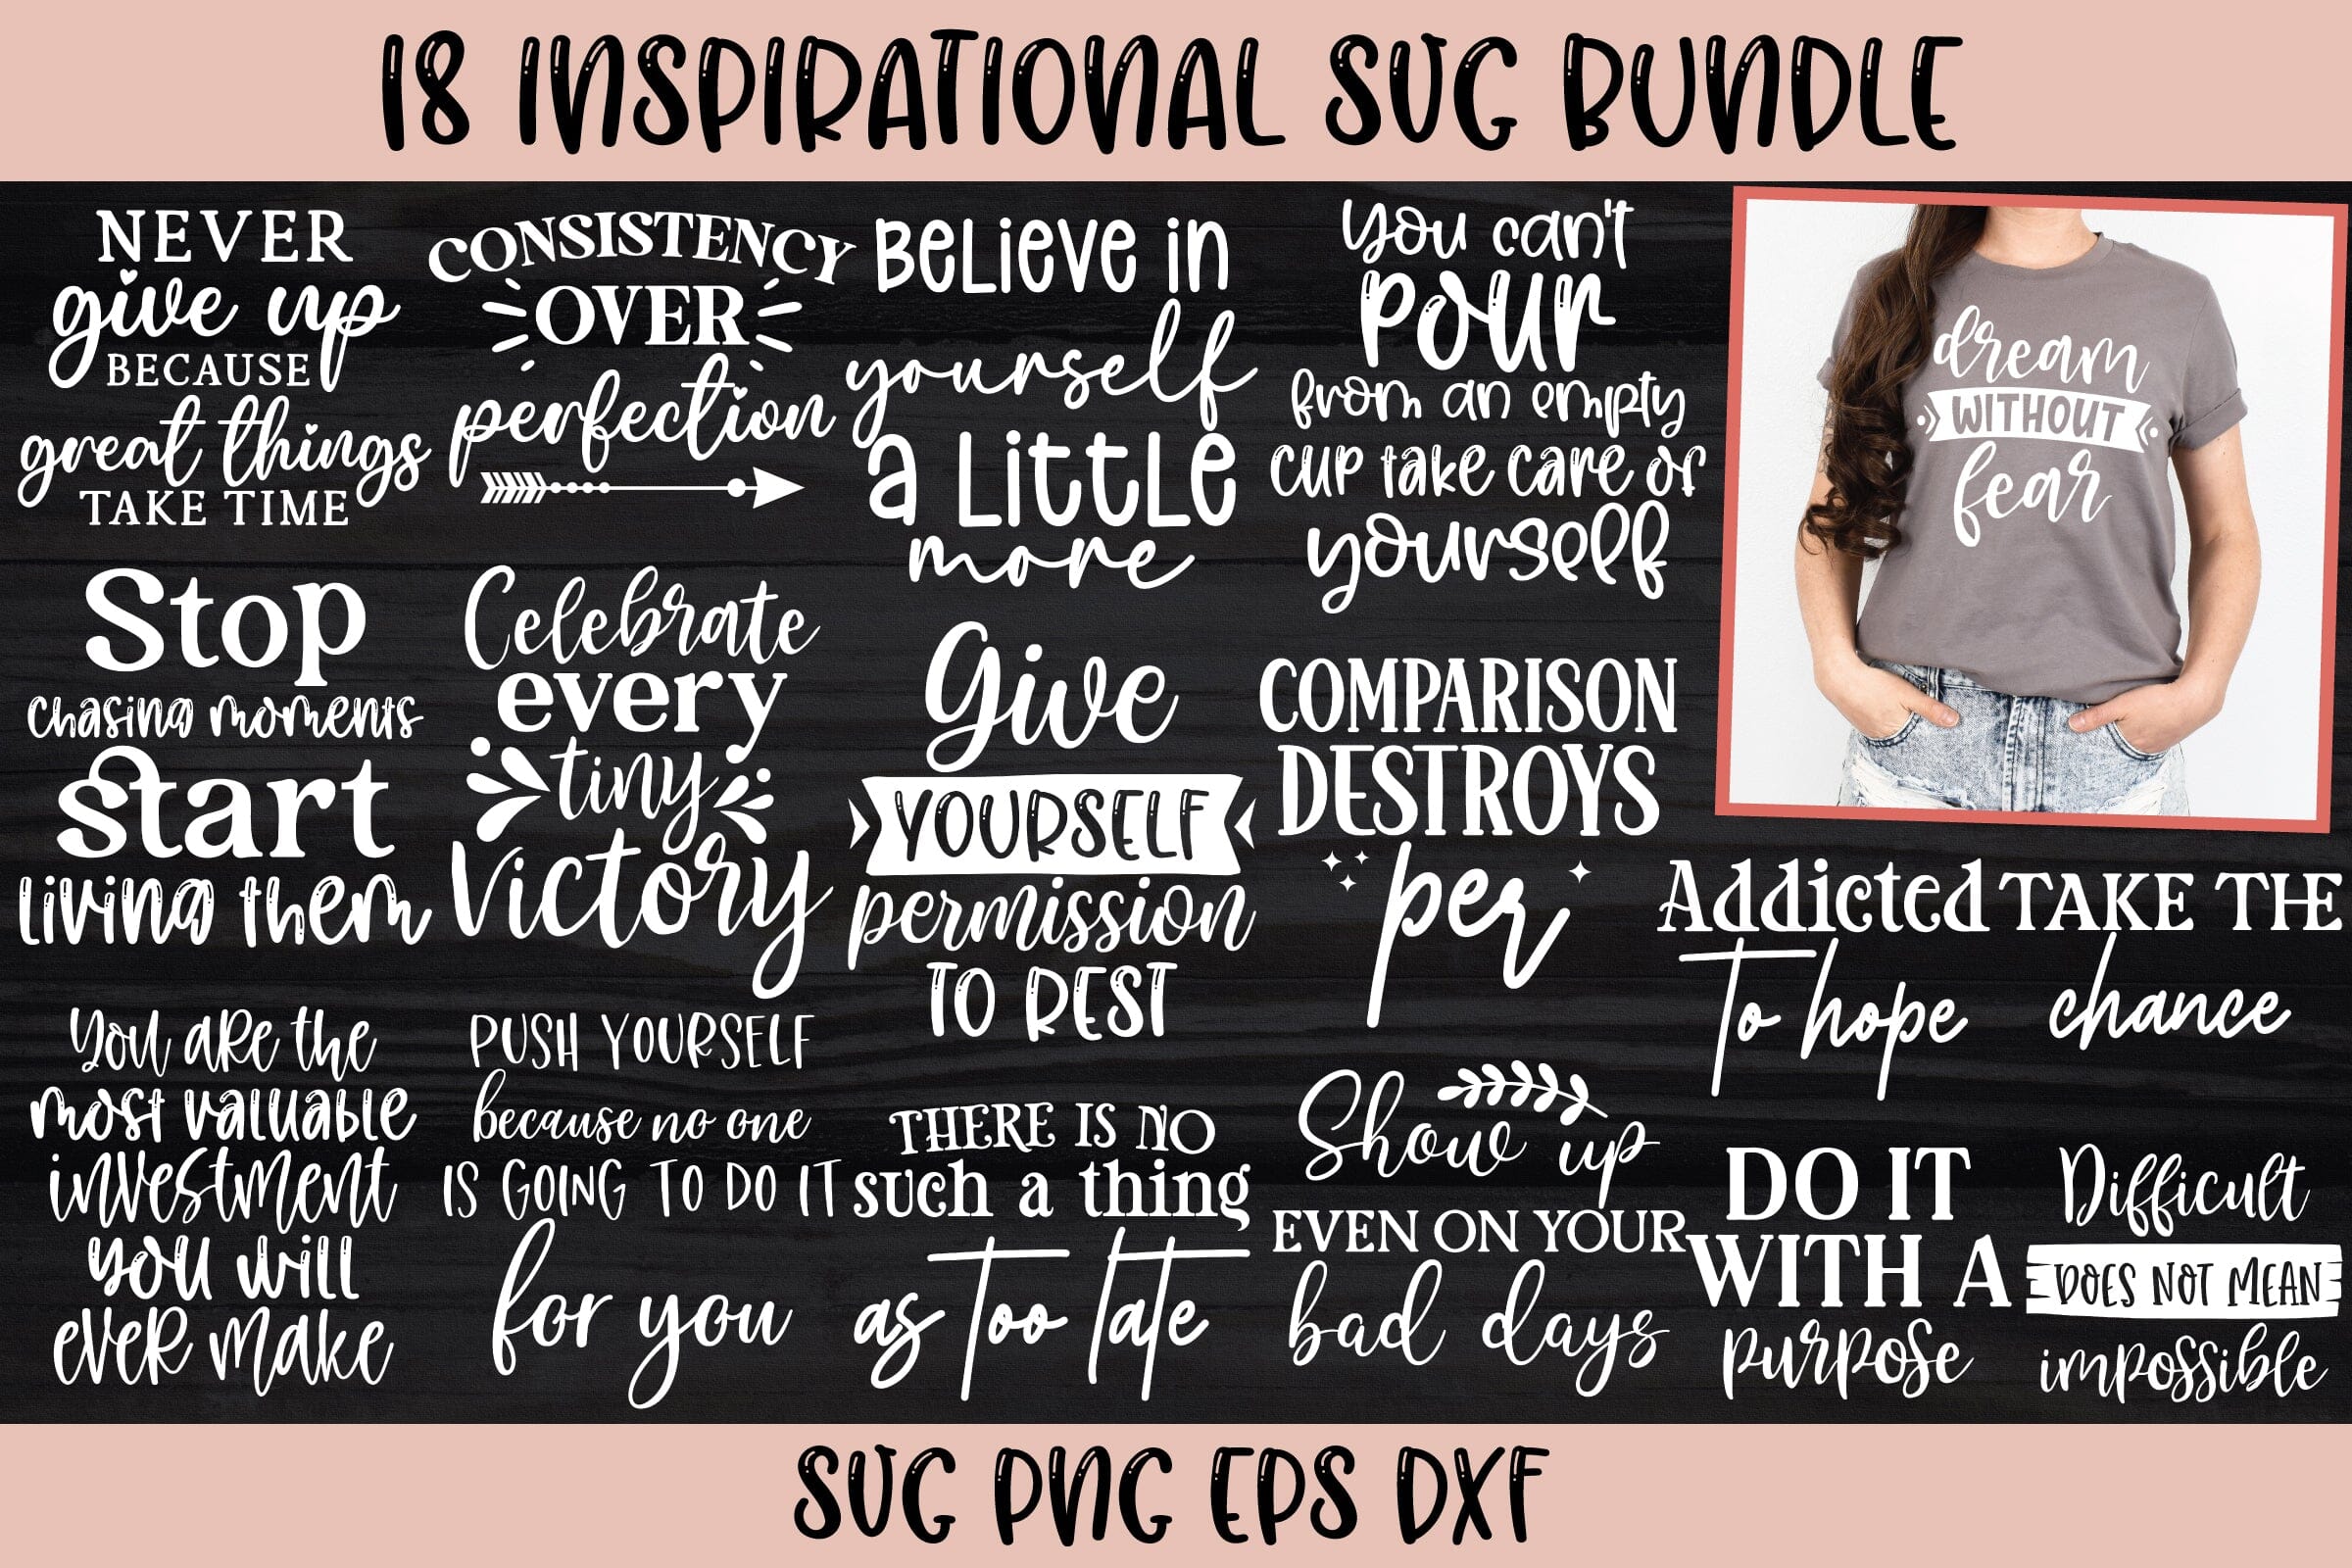 18 INSPIRATIONAL SVG BUNDLE
NEVER
give up
BECAUSE
great things
TAKE TIME
CONSISTENCY
OVER
perfection
Believe in
yourself
a little
more
you can't
pour
from an empty
cup take care of
yourself
dream
WITHOUT
fear
Stop
chasing moments
Start
living them
Celebrate
every
tiny
Victory
Give
YOURSELF
permission
TO REST
COMPARISON
DESTROYS
per
Addicted
To hope
TAKE THE
chance
You are the
most valuable
investment
you will
ever make
PUSH YOURSELF
because no one
IS GOING TO DO IT
for you
THERE IS NO
such a thing
as Too late
Show up
EVEN ON YOUR
bad days
DO IT
WITH A
purpose
Difficult
DOES NOT MEAN
impossible
SVG PNG EPS DXF